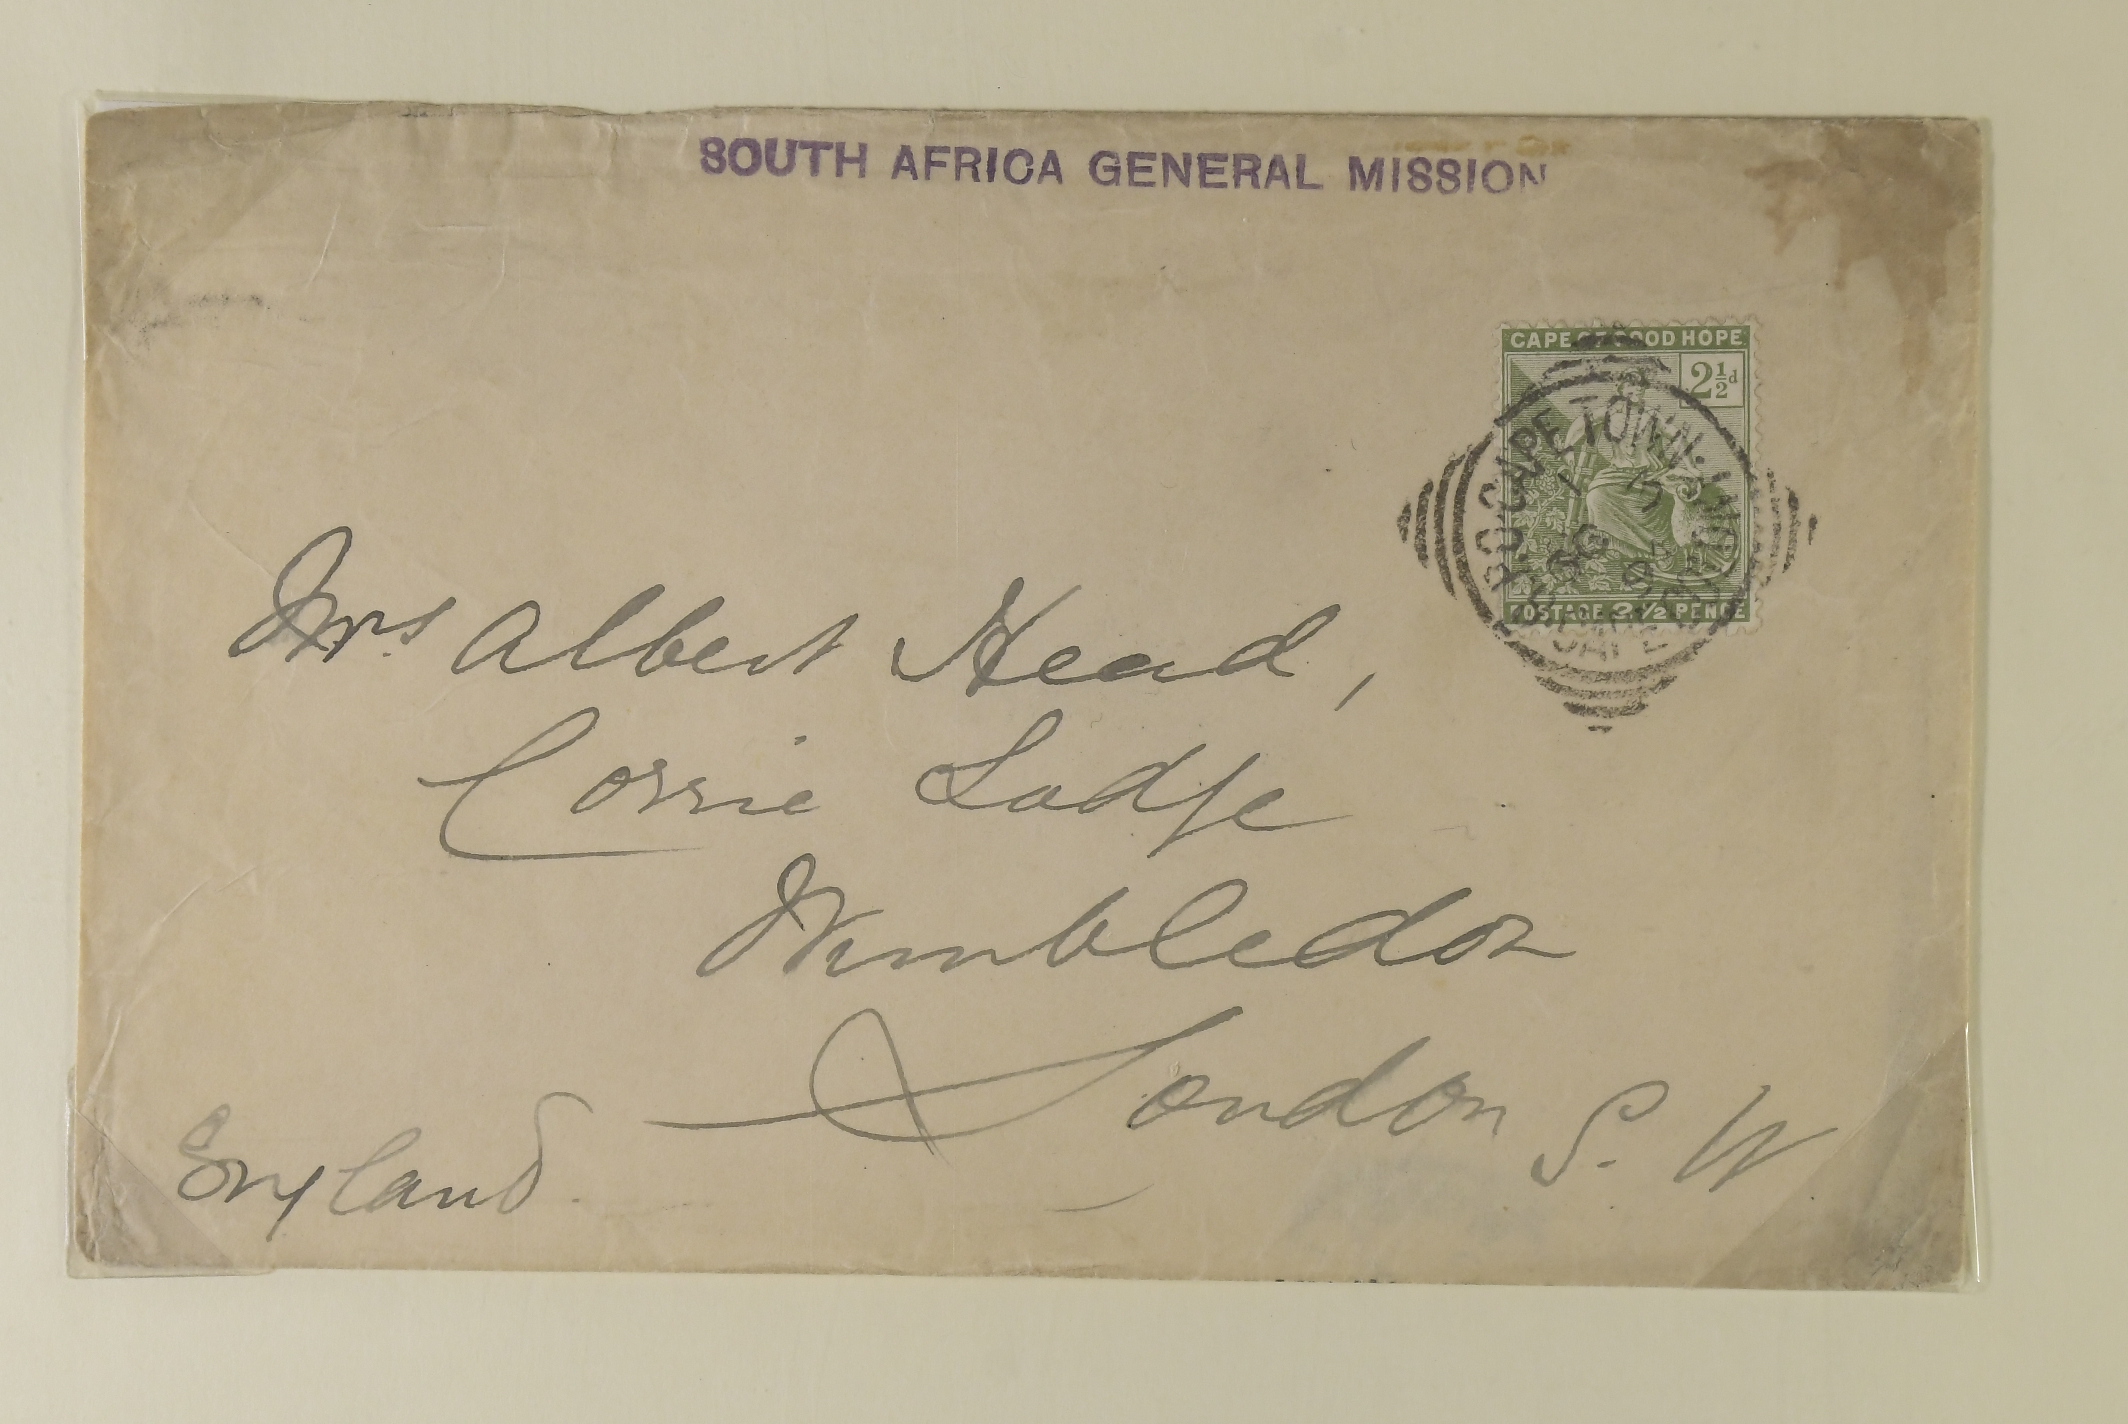 SOUTH AFRICA GENERAL MISSION
CAPE OF GOOD HOPE
2½d
CAPE TOWN
POSTAGE 2½ PENCE
Mrs Albert Head,
Corrie Lodge
Wimbledon
London S. W
England